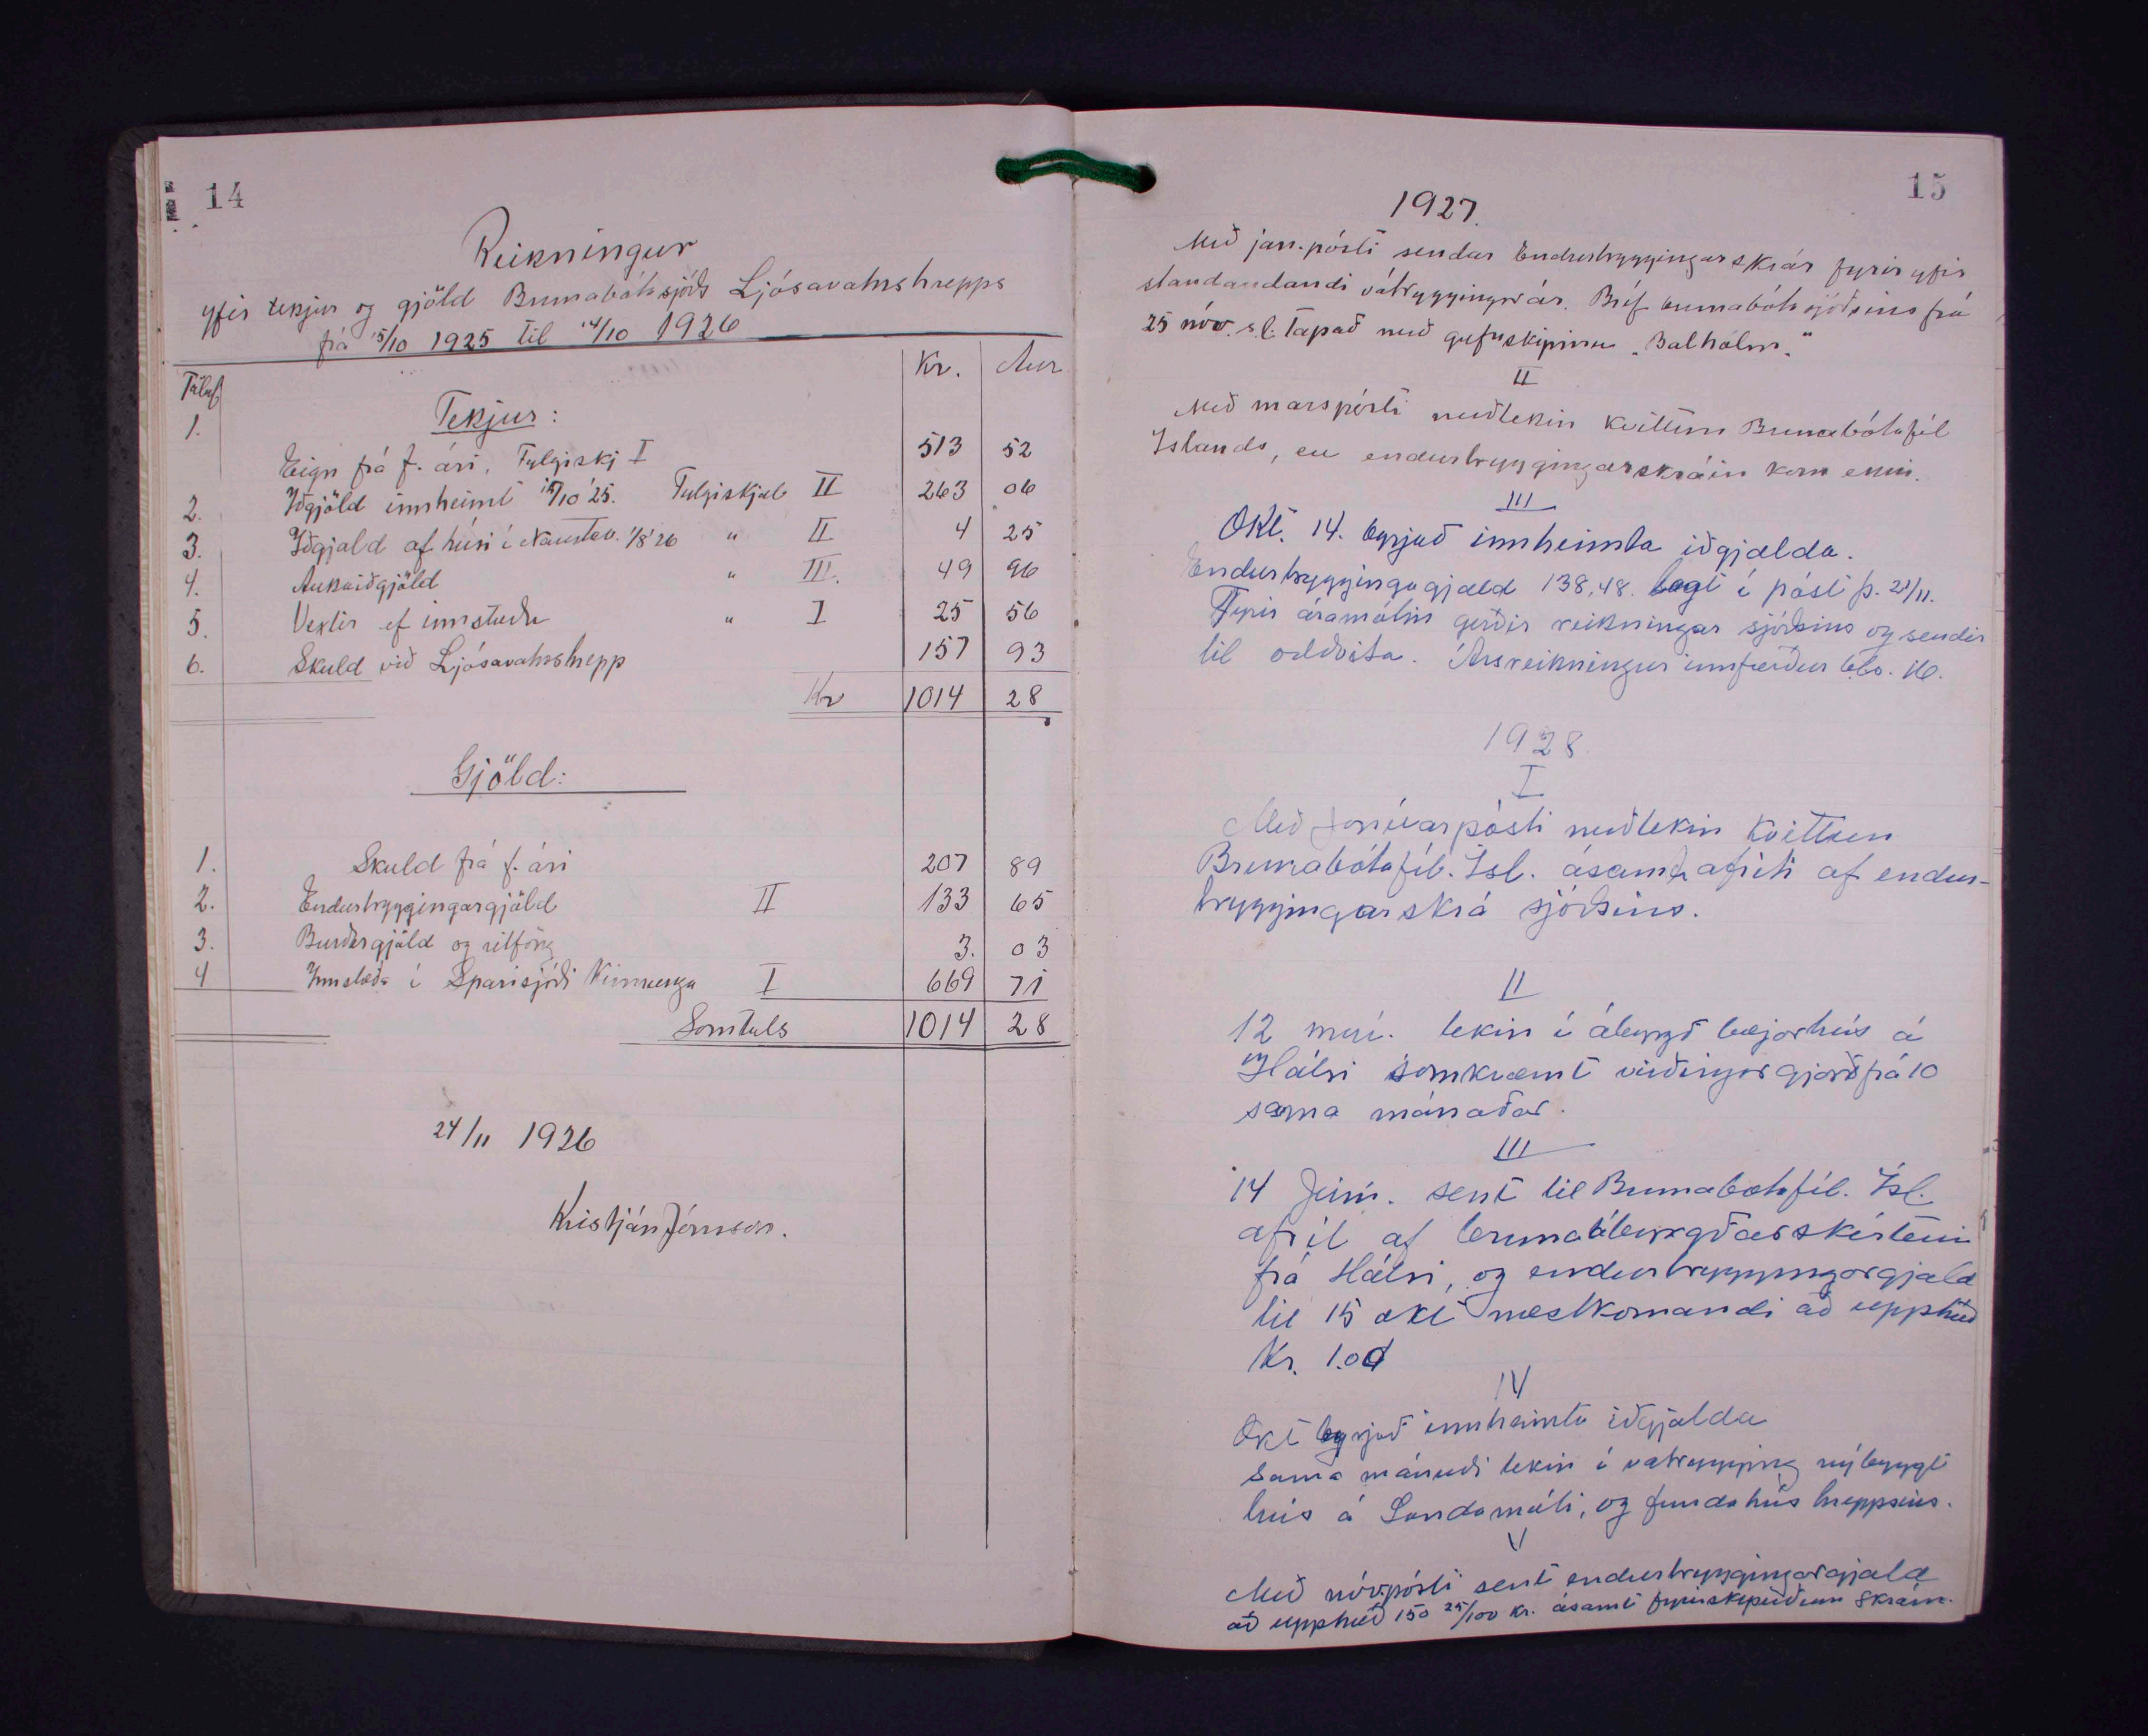 14
Reikningur
yfir tekjur og gjöld Brunabótasjóðs Ljósavatnshrepps
frá 15/10 1925 til 14/10 1926
Tölul. Kr. Aur
Tekjur:
1. Eign frá f. ári, Fylgiskj I 513 52
2. Iðgjöld innheimt 15/10 '25. Fylgiskjal II 263 06
3. Iðgjald af húsi í Naustav. 1/8 '26 " II 4 25
4. Aukaiðgjöld " III. 49 96
5. Vextir af innstæðu " I 25 56
6. Skuld við Ljósavatnshrepp 157 93
Kr 1014 28
Gjöld:
1. Skuld frá f. ári 207 89
2. Endurtryggingargjöld II 133 65
3. Burðargjöld og ritföng 3. 03
4 Innstæða í Sparisjóði Kinnunga I 669 71
Samtals 1014 28
24/11 1926
Kristján Jónsson.
15
1927.
Með jan.pósti sendar Endurtryggingarskrár fyrir yfir
standandandi vátryggingarár. Bréf brunabótasjóðsins frá
25 nóv. s.l. tapað með gufuskipinu „Balholm."
II
Með marspósti meðtekin kvittun Brunabótafél
Islands, en endurtryggingarskráin kom ekki.
III
Okt. 14. byrjuð innheimta iðgjalda.
Endurtryggingagjald 138,48. lagt í póst þ. 21/11.
Fyrir áramótin gerðir reikningar sjóðsins og sendir
til oddvita. Ársreikningur innfærður bls. 16.
1928.
I
Með janúarpósti meðtekin kvittun
Brunabótafél. Ísl. ásamt afriti af endur-
tryggingarskrá sjóðsins.
II
12 maí. tekin í ábyrgð bæjarhús á
Hálsi samkvæmt virðingargjörð frá 10
sama mánaðar.
III
14 Júní. sent til Brunabótafél. Ísl.
afrit af brunaábyrgðarskírteini
frá Hálsi, og endurtryggingargjald
til 15 okt næstkomandi að upphæð
Kr. 1.00
IV
Okt byrjað innheimta iðgjalda
Sama mánuði tekin í vatrygging nýbyggt
hús á Landamóti, og fundahús hreppsins.
V
Með nóv.pósti sent endurtryggingargjald
að upphæð 150 25/100 kr. ásamt fyrirskipuðum skrám.